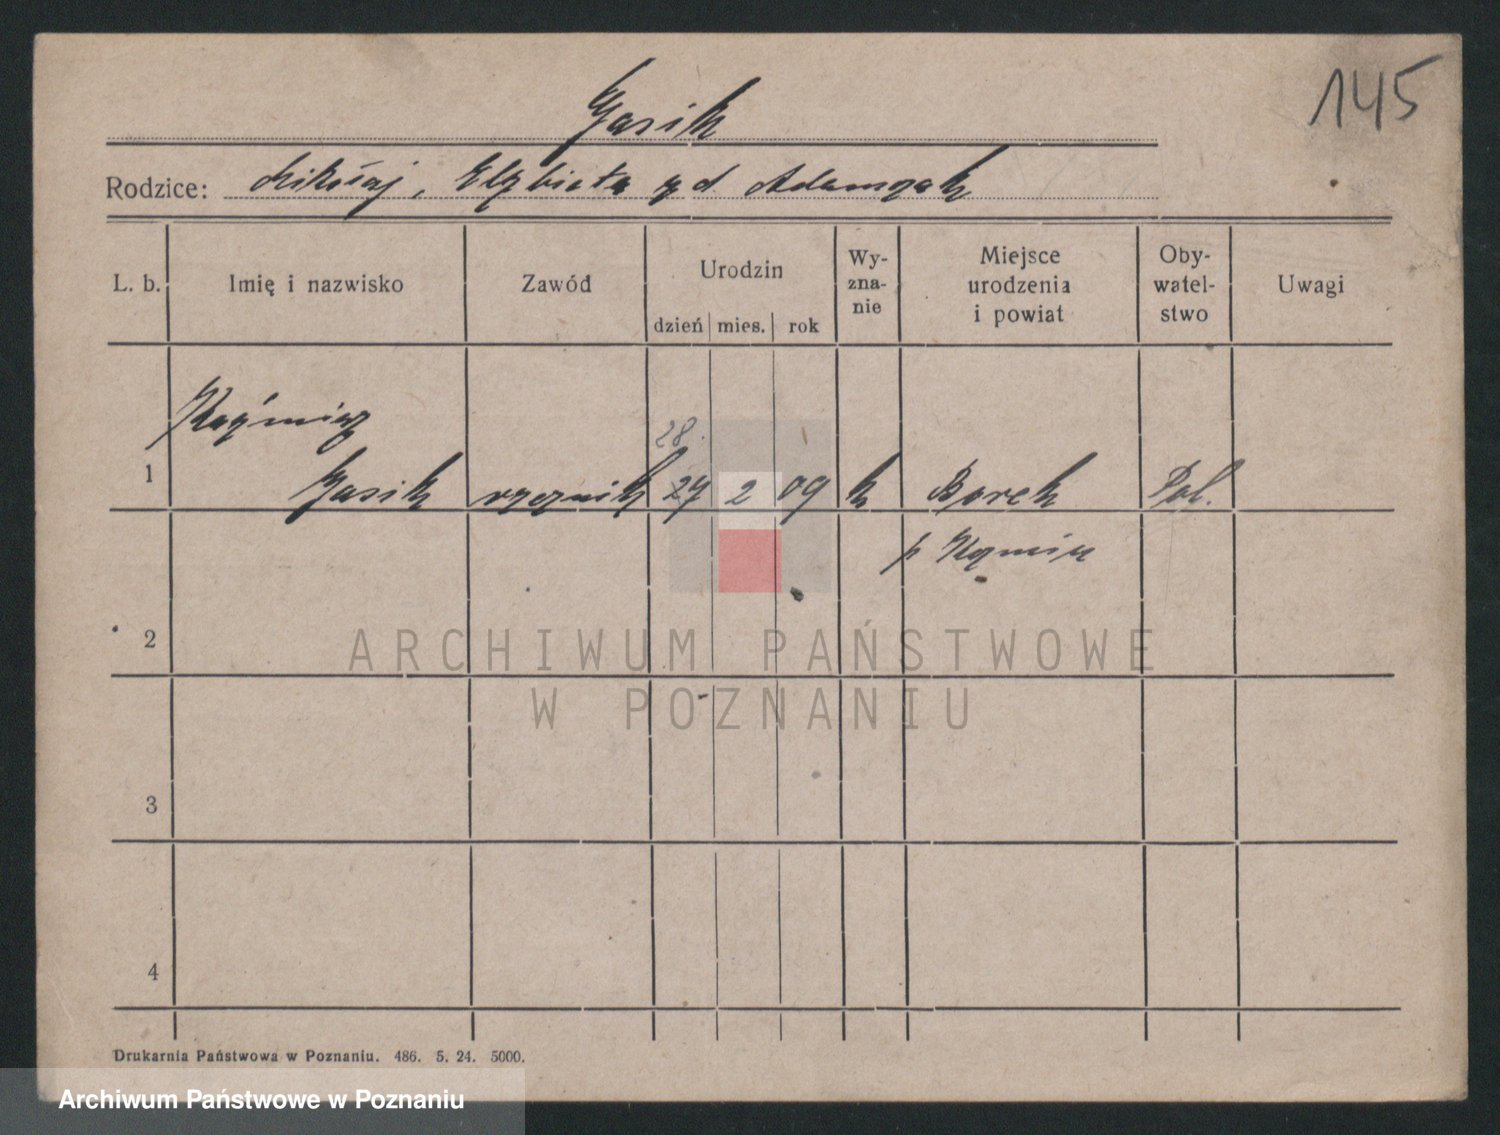 145
Gasik
Rodzice: Mikołaj, Elżbieta zd. Adamczak
L. b. Imię i nazwisko Zawód Urodzin dzień mies. rok Wy-zna-nie Miejsce urodzenia i powiat Oby-watel-stwo Uwagi
Kaźmierz
28.
1 Gasik rzeźnik 27 2 09 k Borek Pol.
p Koźmin
2
ARCHIWUM PAŃSTWOWE
W POZNANIU
3
4
Drukarnia Państwowa w Poznaniu. 486. 5. 24. 5000.
Archiwum Państwowe w Poznaniu